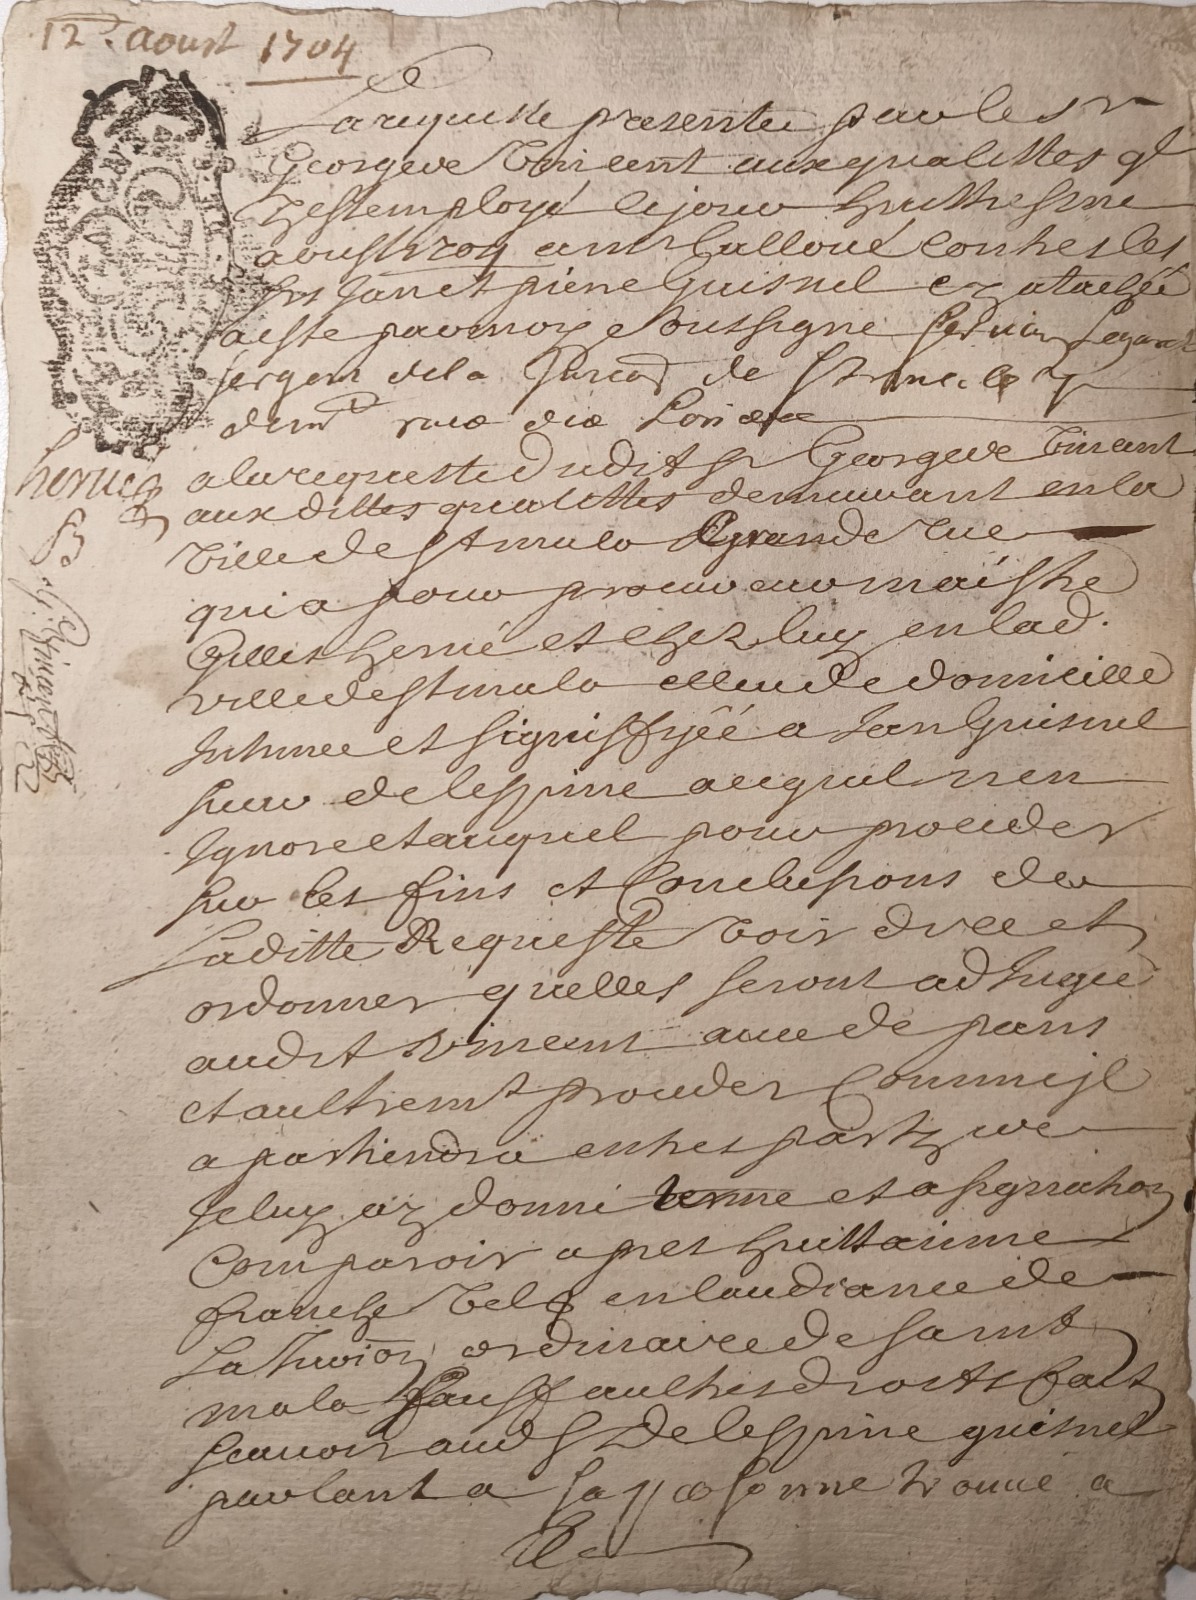 12e. aoust 1704
La requeste presentée par le sr
George Vincent aux qualittes ql
y est employé le jour huittiesme
aoust 1704 Calloué contre les
srs Jan et piere Guisnel cy atachée
a esté par moy soussigné
sergent de la de St malo
demt rue de
a la requeste dudit sr George Vincent
aux dittes qualittes demeurant en la
Ville de St malo grande rue
qui a pour procureur maistre
Gilles hervé et chez luy en lad.
ville de St malo elleu de domicille
Intimée et signiffyée a Jan Guisnel
sieur de lespine aequel nen
Ignore et auquel pour proceder
sur les fins et Conclusions de
Laditte Requeste voir dire et
ordonner quelles seront adjugée
audit Vincent avec depans
et aultremt proceder Comme jl
apartiendra entre partyes
Jeluy ay donné terme et asignation
Comparoir apres huittainne
franche en laudiance de
La Jurion ordinaire de saint
malo sauff aultres droits fait
scavoir audt Sr De lespine guisnel
parlant a sa personne trouvé a
hervé
G. Vincent